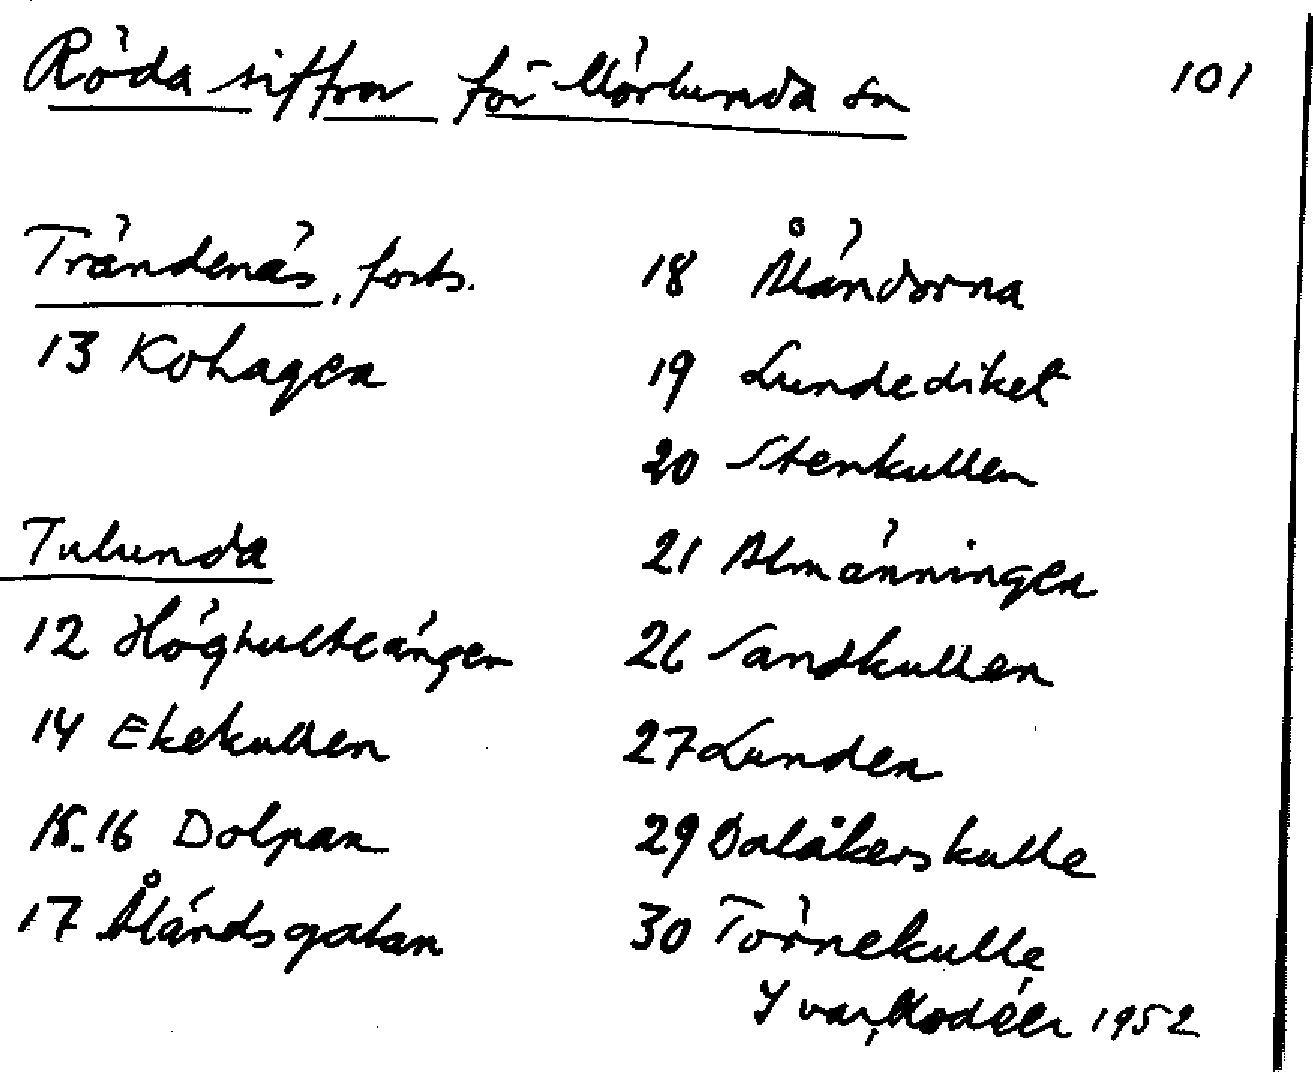 Röda siffror för Mörlunda sn 101
Trändenäs, forts.
13 Kohagen
Tulunda
12 Höghulteängen
14 Ekekullen
15-16 Dolpan
17 Åländsgatan
18 Åländorna
19 Lundediket
20 Stenkullen
21 Almänningen
26 Sandkullen
27 Lunden
29 Dalåkerskulle
30 Törnekulle
Yvar Modéer 1952